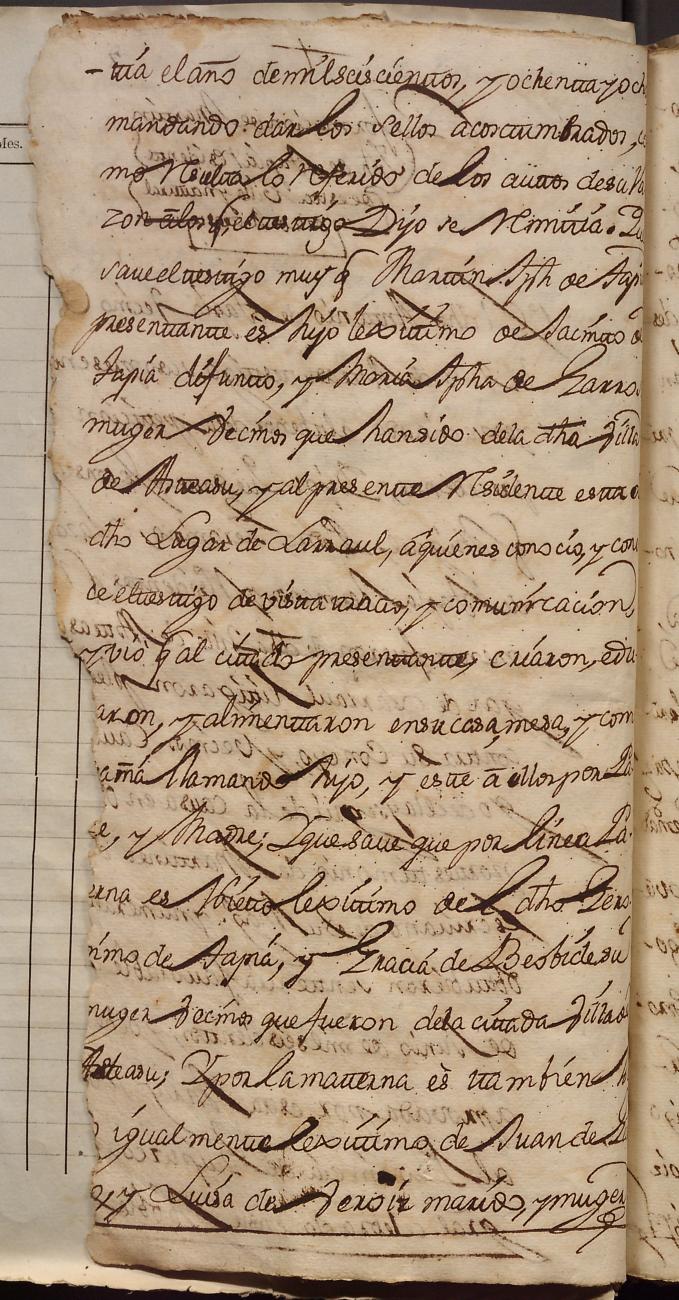 Mes.
- tta el año de mil seiscienttos, y ochenta y och
mandando dar los sellos acostumbrados, co
mo resulta lo referido de los auttos de su Ra
zon a los Dijo se remitia. Q
save el testigo muy q Martin Jph de Tapi
presentante es hijo lexittimo de Jacinto d
Tapia difunto, y Maria Jpha de Larro
muger vecinos que han sido de la dha Villa
de Asteasu, y al presente residente esta e
dho Lugar de Larraul, a quienes conocio, y cono
ce el testigo de vista tratto, y comunicacion,
y vio q al cittado presentante, criaron, edu
aron, y alimentaron en su casa, mesa, y com
aña llamando hijo, y este a ellos por Pa
e, y Madre; Y que save que por linea Pa
erna es Nieto lexittimo de los dhos Gero
nimo de Tapia, y Gracia de Beobide su
muger vecinos que fueron de la cittada Villa d
Asteasu; Y por la materna es ttambien N
igualmente lexittimo de Juan de L
y Luisa de marido, y muger